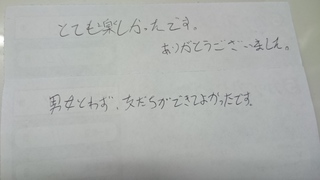 とても楽しかったです。
ありがとうございました。
男女とわず、友だちができてよかったです。